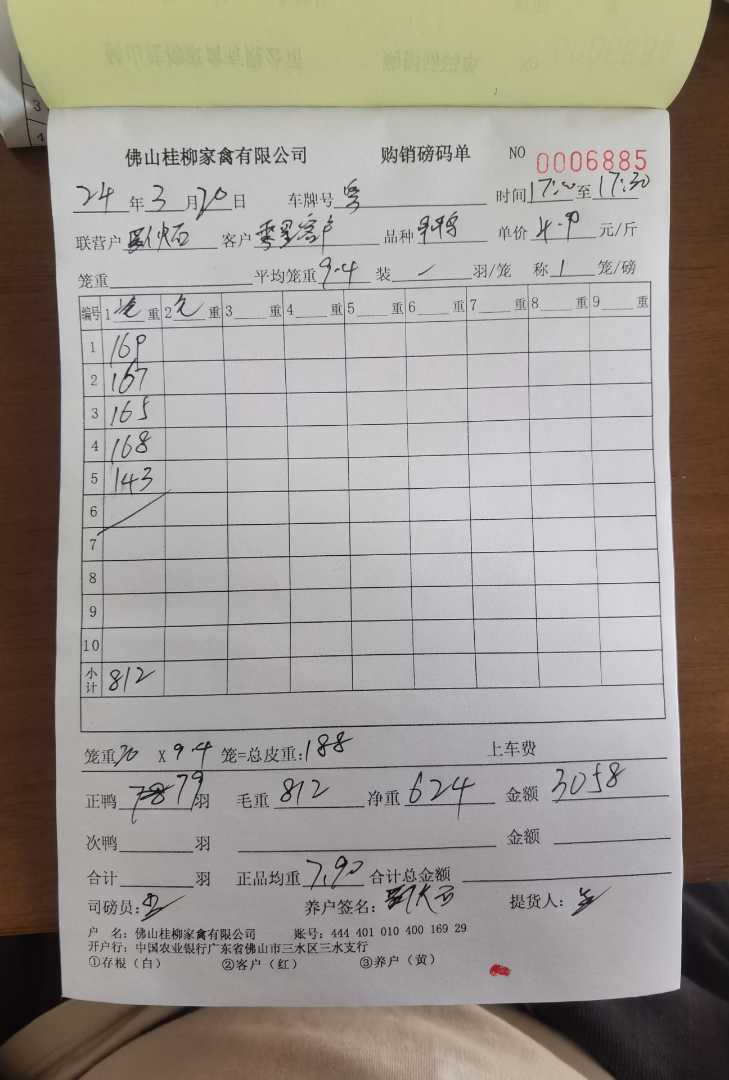 佛山桂柳家禽有限公司 购销磅码单 NO 0006885
24年3月20日 车牌号 粤 时间17:00至17:30
联营户 客户 品种 单价 4.90 元/斤
笼重 平均笼重9.4 装 一 羽/笼 称 1 笼/磅
编号 1 重 2 重 3 重 4 重 5 重 6 重 7 重 8 重 9 重
1 169
2 167
3 165
4 168
5 143
6
7
8
9
10
小计 812
笼重20 X 9.4 笼=总皮重:188 上车费
正鸭 79羽 毛重 812 净重 624 金额 3058
次鸭 羽 金额
合计 羽 正品均重 7.90 合计总金额
司磅员: 养户签名: 提货人:
户 名: 佛山桂柳家禽有限公司 账号: 444 401 010 400 169 29
开户行: 中国农业银行广东省佛山市三水区三水支行
①存根（白） ②客户（红） ③养户（黄）